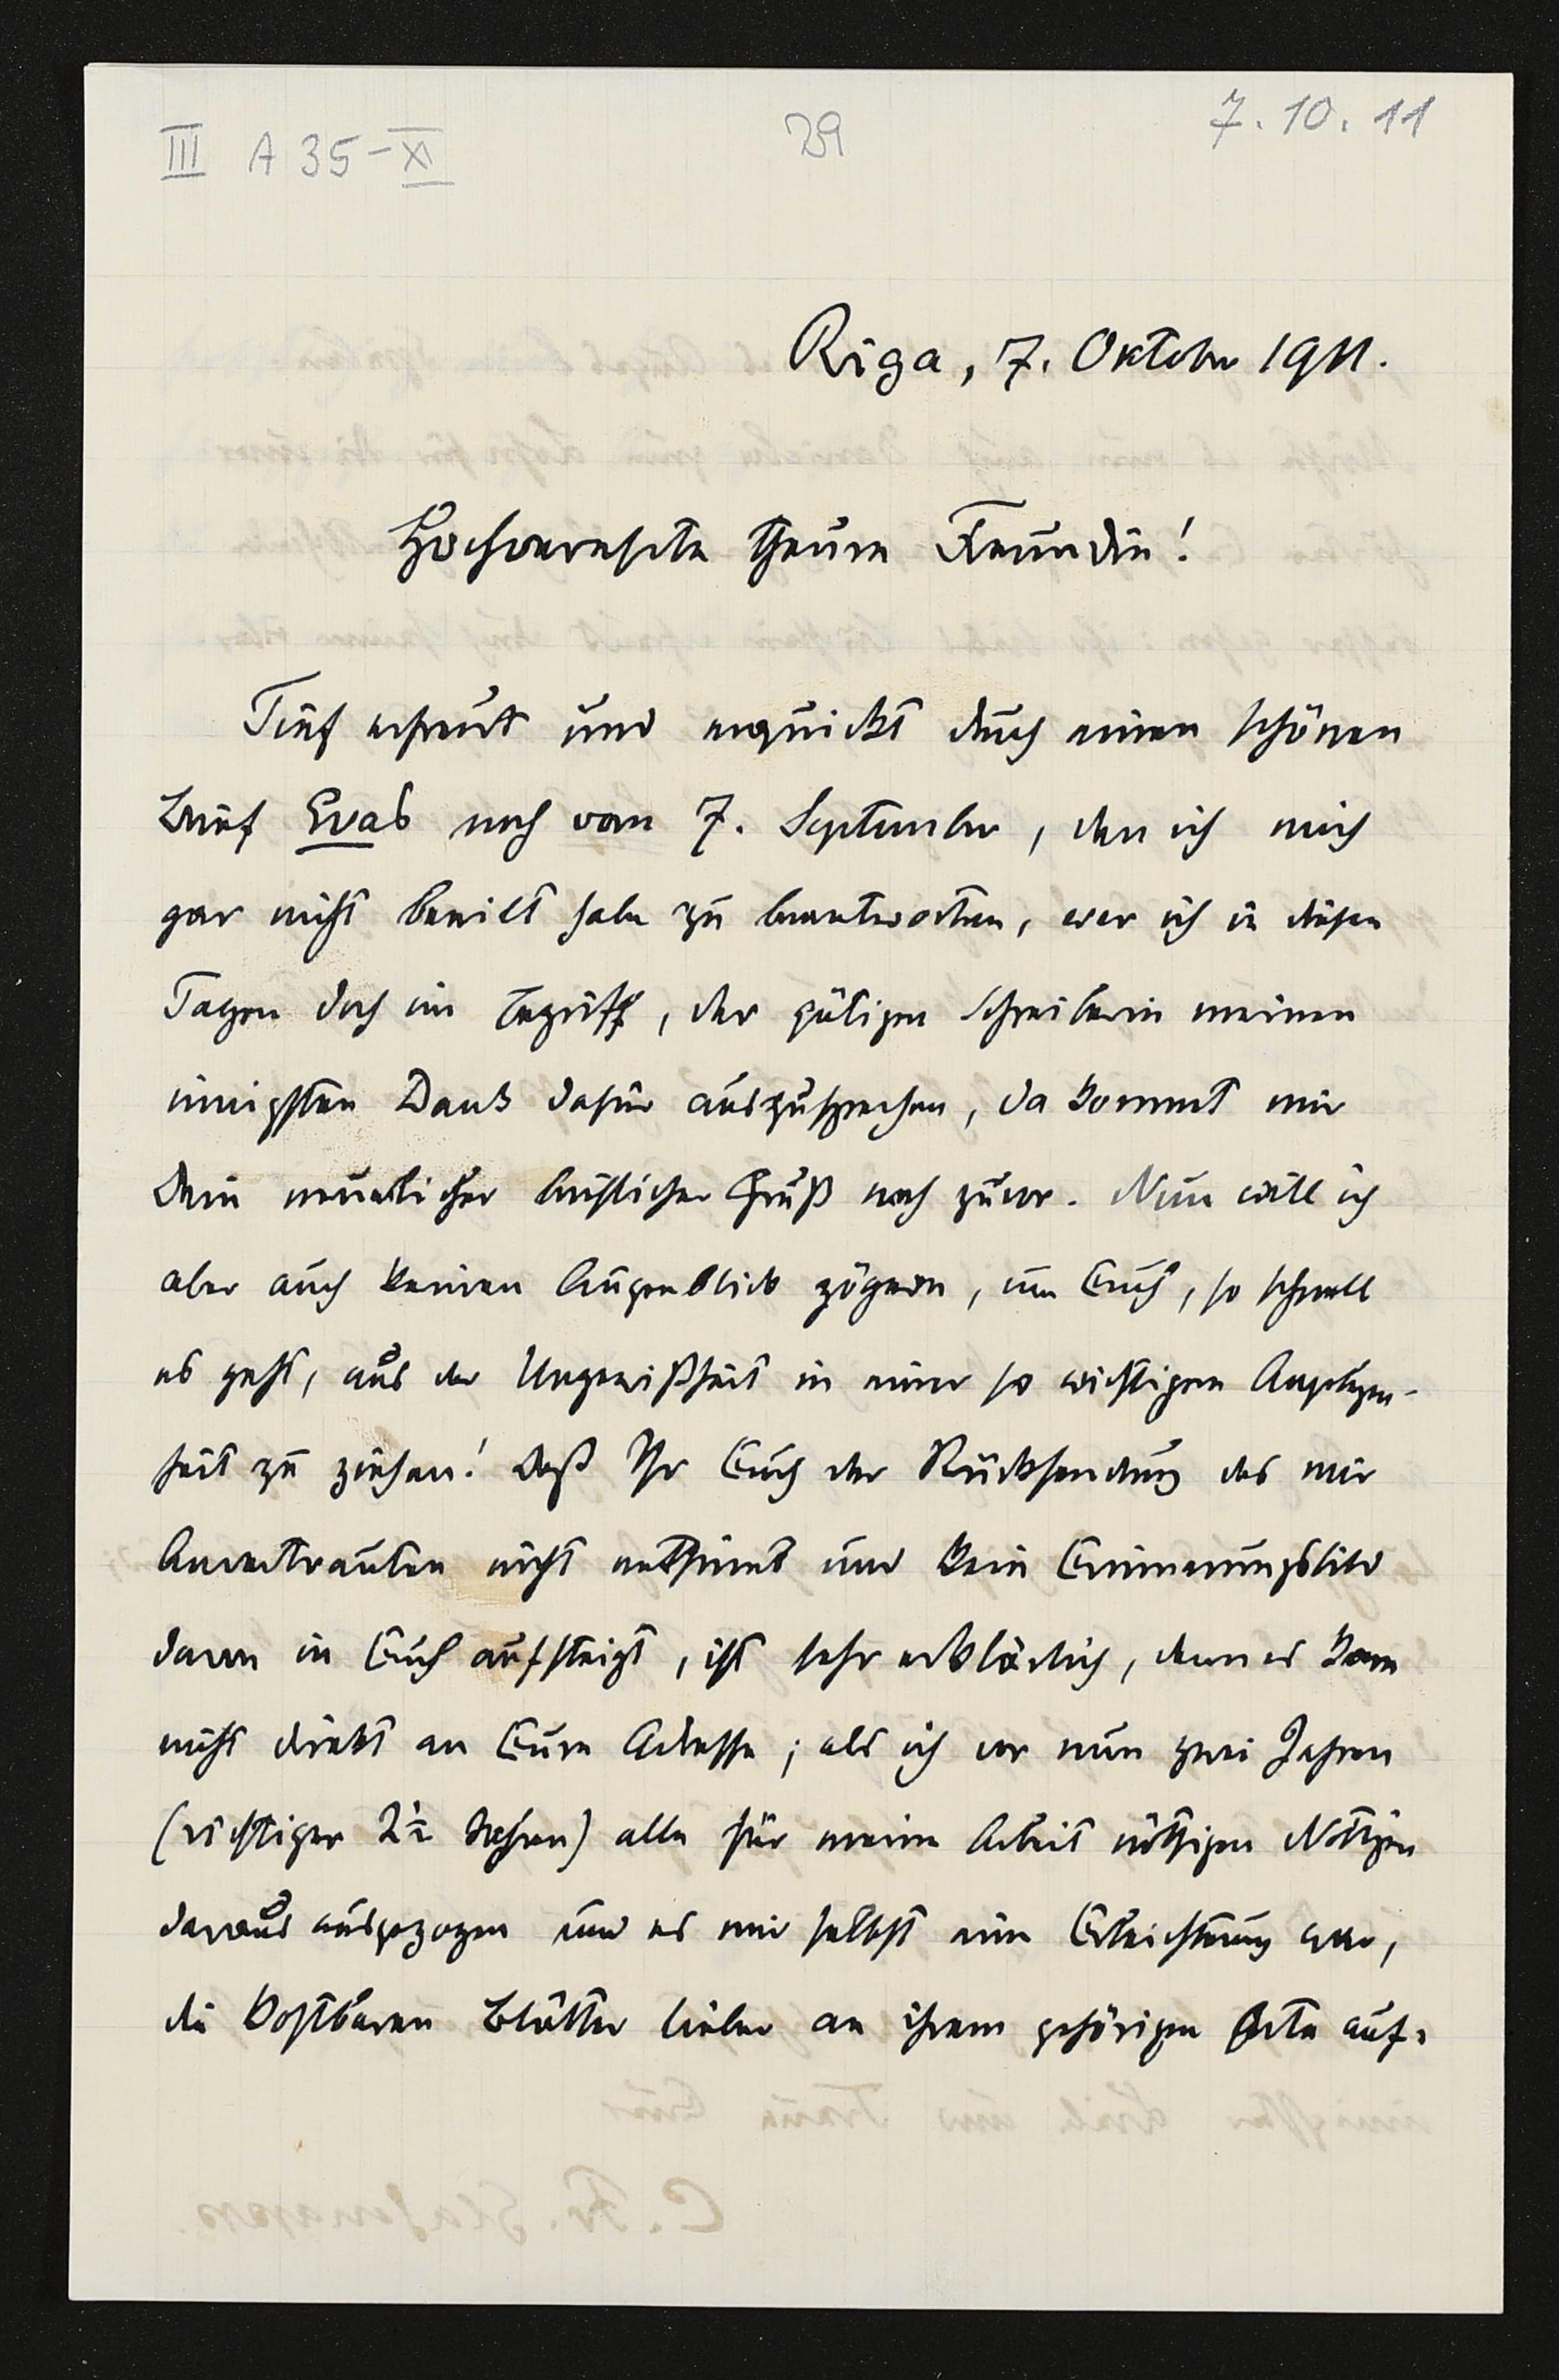 III A 35-XI
29
7.10.11
Riga, 7. Oktober 1911.
Hochverehrte theure Freundin!
Tief erfreut und erquickt durch einen schönen
Brief Evas noch vom 7. September, den ich mich
gar nicht beeilt habe zu beantworten, war ich in diesen
Tagen doch im Begriff, der gütigen Schreiberin meinen
innigsten Dank dafür auszusprechen, da kommt mir
Dein neuerlicher brieflicher Gruß noch zuvor. Nun will ich
aber auch keinen Augenblick zögern, um Euch, so schnell
es geht, aus der Ungewißheit in einer so wichtigen Angelegen-
heit zu ziehen! Daß Ihr Euch der Rücksendung des mir
Anvertrauten nicht entsinnt und kein Erinnerungsbild
davon in Euch aufsteigt, ist sehr erklärlich, denn es kam
nicht direkt an Eure Adresse; als ich vor nun zwei Jahren
(richtiger 2½ Jahren) alle für meine Arbeit nöthigen Notizen
daraus ausgezogen und es mir selbst eine Erleichterung war,
die kostbaren Blätter lieber an ihrem gehörigen Orte auf-